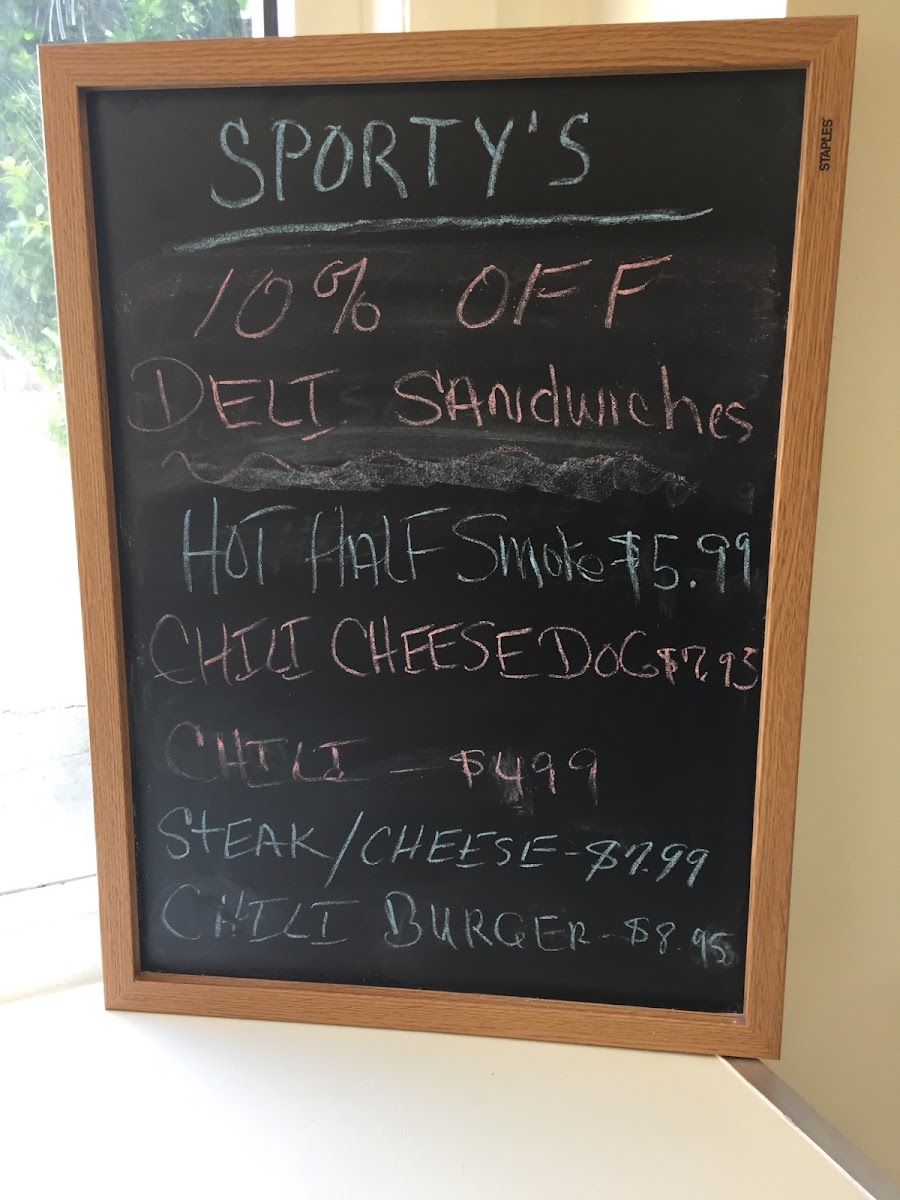 SPORTY'S
STAPLES
10% OFF
DELI SANdwiches
HOT HALF Smoke $5.99
CHILI CHEESE DOG $7.95
CHILI - $499
STEAK/CHEESE - $7.99
CHILI BURGER - $8.95